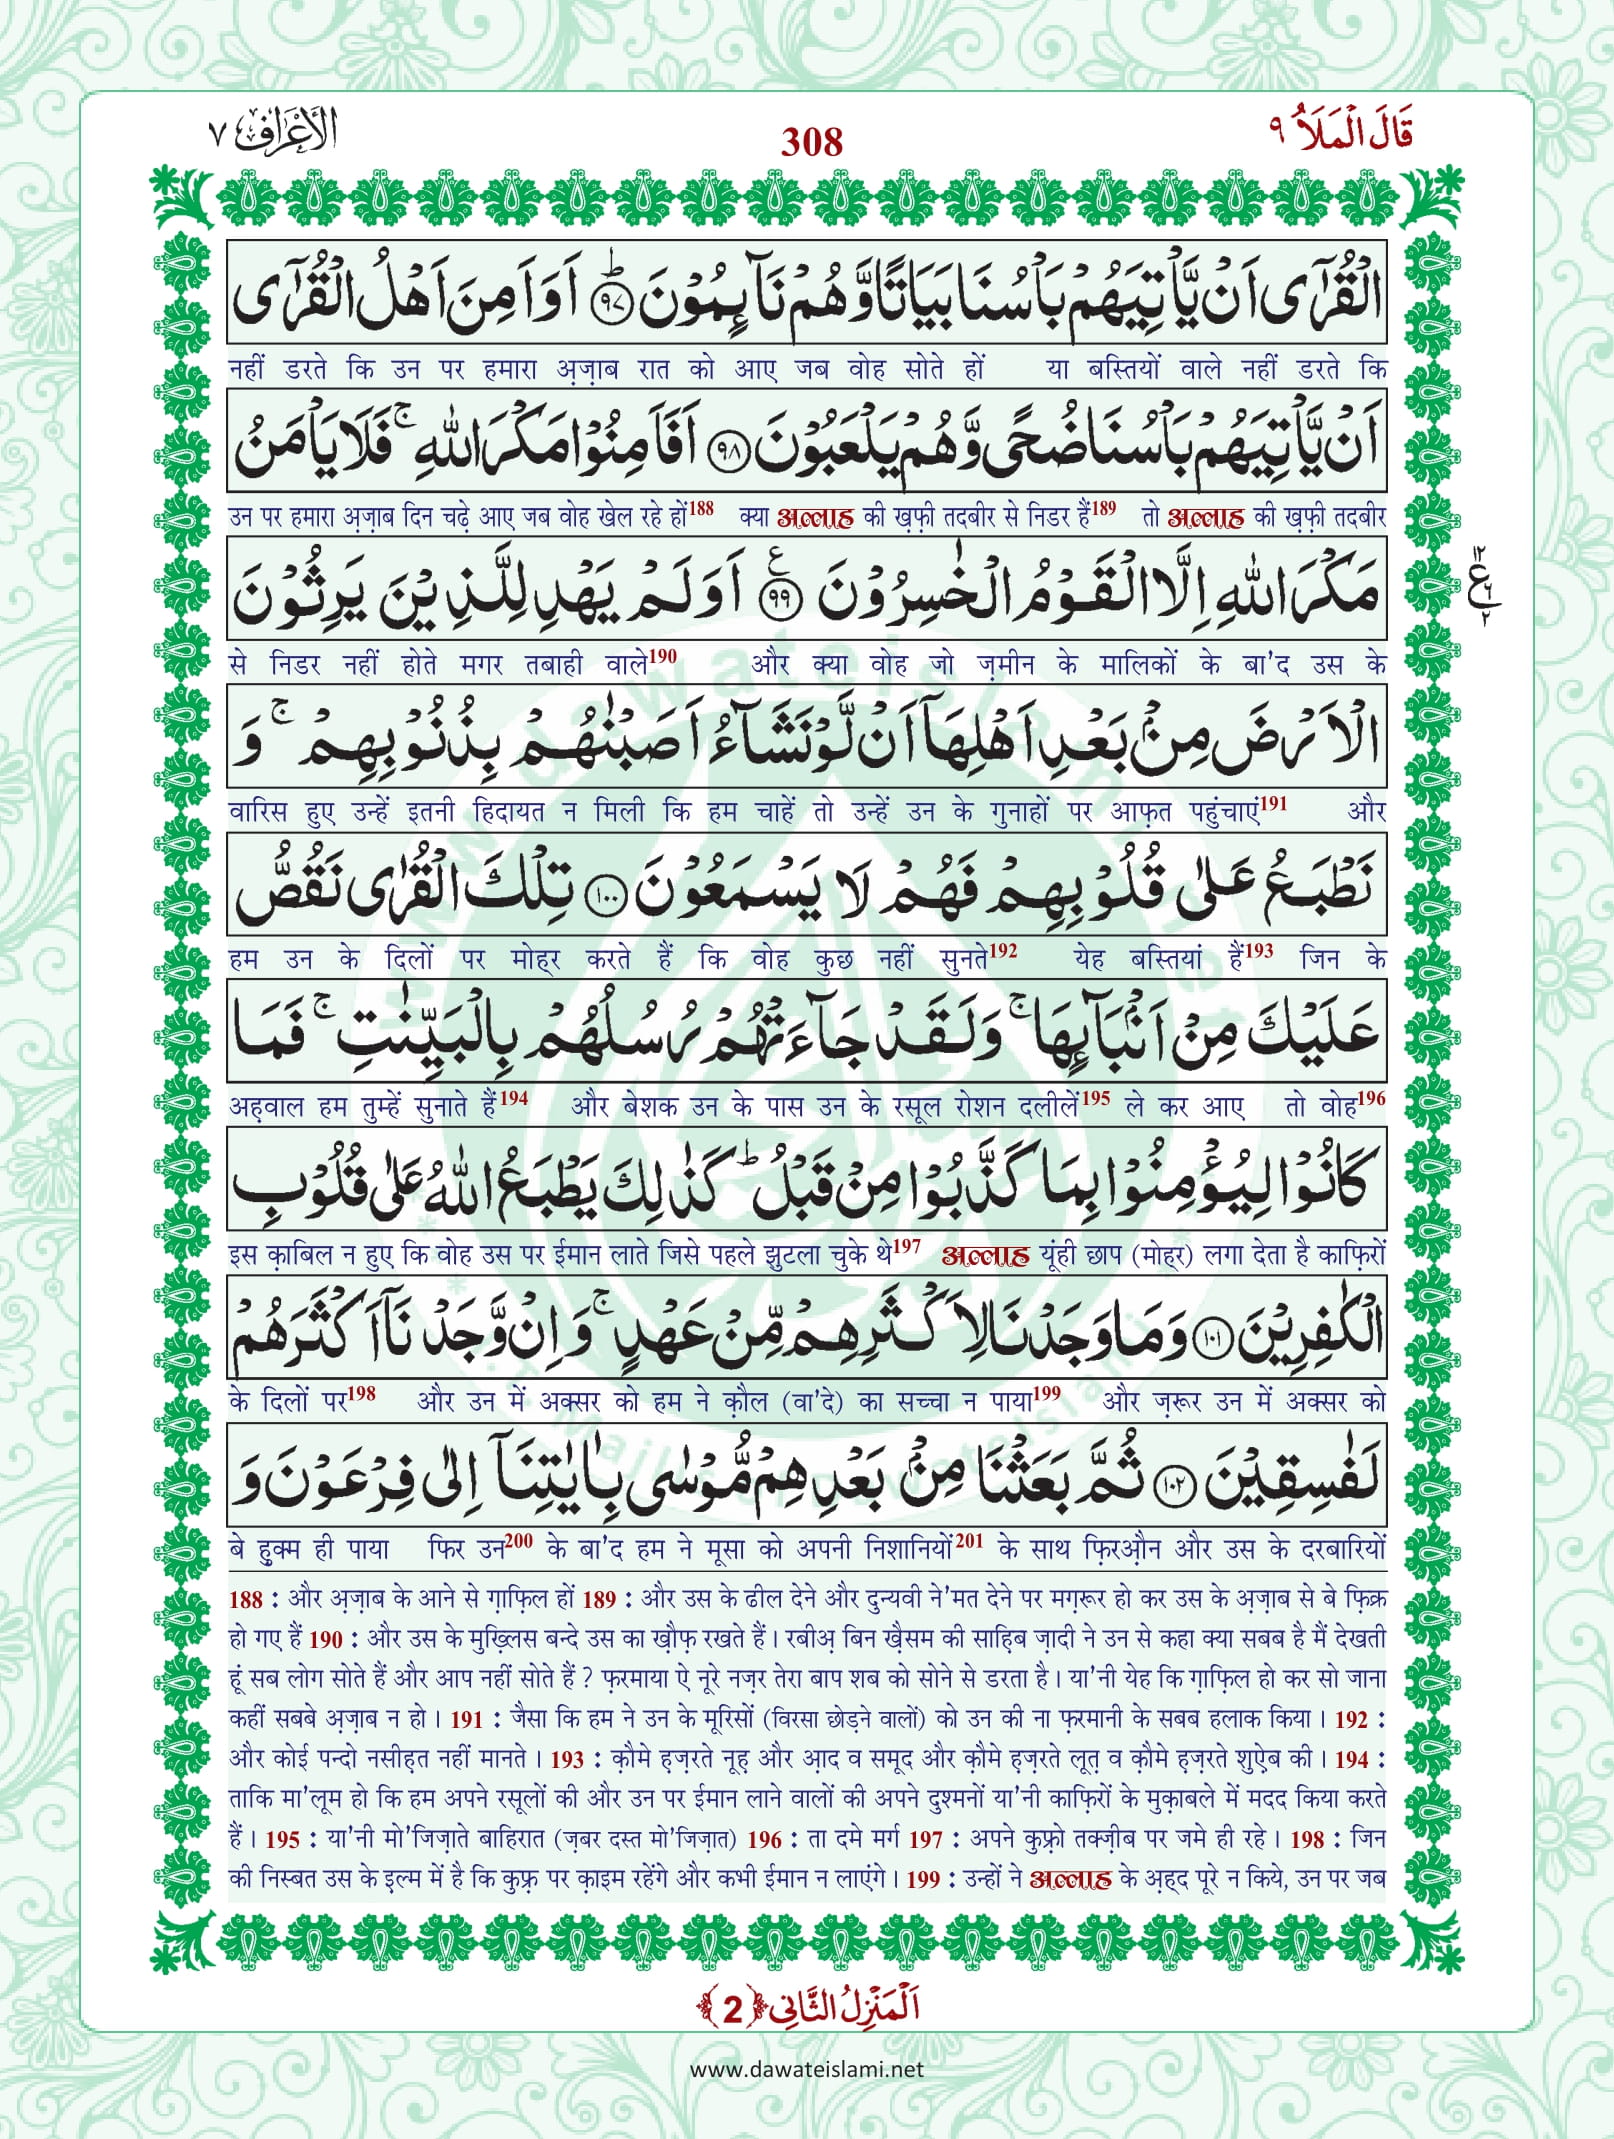 قَالَ الْمَلَاُ ٩
308
الْأَعْرَاف ٧
الْقُرٰۤى اَنْ یَّاْتِیَهُمْ بَاْسُنَا بَیَاتًا وَّ هُمْ نَآىٕمُوْنَؕ۝۹۷ اَوَ اَمِنَ اَهْلُ الْقُرٰۤى
नहीं डरते कि उन पर हमारा अ़ज़ाब रात को आए जब वोह सोते हों या बस्तियों वाले नहीं डरते कि
اَنْ یَّاْتِیَهُمْ بَاْسُنَا ضُحًى وَّ هُمْ یَلْعَبُوْنَ۝۹۸ اَفَاَمِنُوْا مَكْرَ اللّٰهِۚ فَلَا یَاْمَنُ
उन पर हमारा अ़ज़ाब दिन चढ़े आए जब वोह खेल रहे हों188 क्या अल्लाह की ख़फ़ी तदबीर से निडर हैं189 तो अल्लाह की ख़फ़ी तदबीर
مَكْرَ اللّٰهِ اِلَّا الْقَوْمُ الْخٰسِرُوْنَ۠۝۹۹ اَوَ لَمْ یَهْدِ لِلَّذِیْنَ یَرِثُوْنَ
١٢ ع ٦ ٢
से निडर नहीं होते मगर तबाही वाले190 और क्या वोह जो ज़मीन के मालिकों के बा'द उस के
الْاَرْضَ مِنْۢ بَعْدِ اَهْلِهَاۤ اَنْ لَّوْ نَشَآءُ اَصَبْنٰهُمْ بِذُنُوْبِهِمْۚ وَ
वारिस हुए उन्हें इतनी हिदायत न मिली कि हम चाहें तो उन्हें उन के गुनाहों पर आफ़त पहुंचाएं191 और
نَطْبَعُ عَلٰى قُلُوْبِهِمْ فَهُمْ لَا یَسْمَعُوْنَ۝۱۰۰ تِلْكَ الْقُرٰى نَقُصُّ
हम उन के दिलों पर मोह्र करते हैं कि वोह कुछ नहीं सुनते192 येह बस्तियां हैं193 जिन के
عَلَیْكَ مِنْ اَنْۢبَآىٕهَاۚ وَ لَقَدْ جَآءَتْهُمْ رُسُلُهُمْ بِالْبَیِّنٰتِۚ فَمَا
अह़वाल हम तुम्हें सुनाते हैं194 और बेशक उन के पास उन के रसूल रोशन दलीलें195 ले कर आए तो वोह196
كَانُوْا لِیُؤْمِنُوْا بِمَا كَذَّبُوْا مِنْ قَبْلُؕ كَذٰلِكَ یَطْبَعُ اللّٰهُ عَلٰى قُلُوْبِ
इस क़ाबिल न हुए कि वोह उस पर ईमान लाते जिसे पहले झुटला चुके थे197 अल्लाह यूंही छाप (मोह्र) लगा देता है काफ़िरों
الْكٰفِرِیْنَ۝۱۰۱ وَ مَا وَجَدْنَا لِاَكْثَرِهِمْ مِّنْ عَهْدٍۚ وَ اِنْ وَّجَدْنَاۤ اَكْثَرَهُمْ
के दिलों पर198 और उन में अक्सर को हम ने क़ौल (वा'दे) का सच्चा न पाया199 और ज़रूर उन में अक्सर को
لَفٰسِقِیْنَ۝۱۰۲ ثُمَّ بَعَثْنَا مِنْۢ بَعْدِهِمْ مُّوْسٰى بِاٰیٰتِنَاۤ اِلٰى فِرْعَوْنَ وَ
बे हुक्म ही पाया फिर उन200 के बा'द हम ने मूसा को अपनी निशानियों201 के साथ फ़िरऔ़न और उस के दरबारियों
188 : और अ़ज़ाब के आने से ग़ाफ़िल हों 189 : और उस के ढील देने और दुन्यवी ने'मत देने पर मग़रूर हो कर उस के अ़ज़ाब से बे फ़िक्र
हो गए हैं 190 : और उस के मुख़्लिस बन्दे उस का ख़ौफ़ रखते हैं। रबीअ़ बिन ख़ैसम की साह़िब ज़ादी ने उन से कहा क्या सबब है मैं देखती
हूं सब लोग सोते हैं और आप नहीं सोते हैं ? फ़रमाया ऐ नूरे नज़र तेरा बाप शब को सोने से डरता है। या'नी येह कि ग़ाफ़िल हो कर सो जाना
कहीं सबबे अ़ज़ाब न हो। 191 : जैसा कि हम ने उन के मूरिसों (विरसा छोड़ने वालों) को उन की ना फ़रमानी के सबब हलाक किया। 192 :
और कोई पन्दो नसीह़त नहीं मानते। 193 : क़ौमे ह़ज़रते नूह़ और आ़द व समूद और क़ौमे ह़ज़रते लूत़ व क़ौमे ह़ज़रते शुऐ़ब की। 194 :
ताकि मा'लूम हो कि हम अपने रसूलों की और उन पर ईमान लाने वालों की अपने दुश्मनों या'नी काफ़िरों के मुक़ाबले में मदद किया करते
हैं। 195 : या'नी मो'जिज़ाते बाहिरात (ज़बर दस्त मो'जिज़ात) 196 : ता दमे मर्ग 197 : अपने कुफ़्रो तक्ज़ीब पर जमे ही रहे। 198 : जिन
की निस्बत उस के इल्म में है कि कुफ़्र पर क़ाइम रहेंगे और कभी ईमान न लाएंगे। 199 : उन्हों ने अल्लाह के अ़ह्द पूरे न किये, उन पर जब
اَلْمَنْزِلُ الثَّانِی ﴿2﴾
www.dawateislami.net